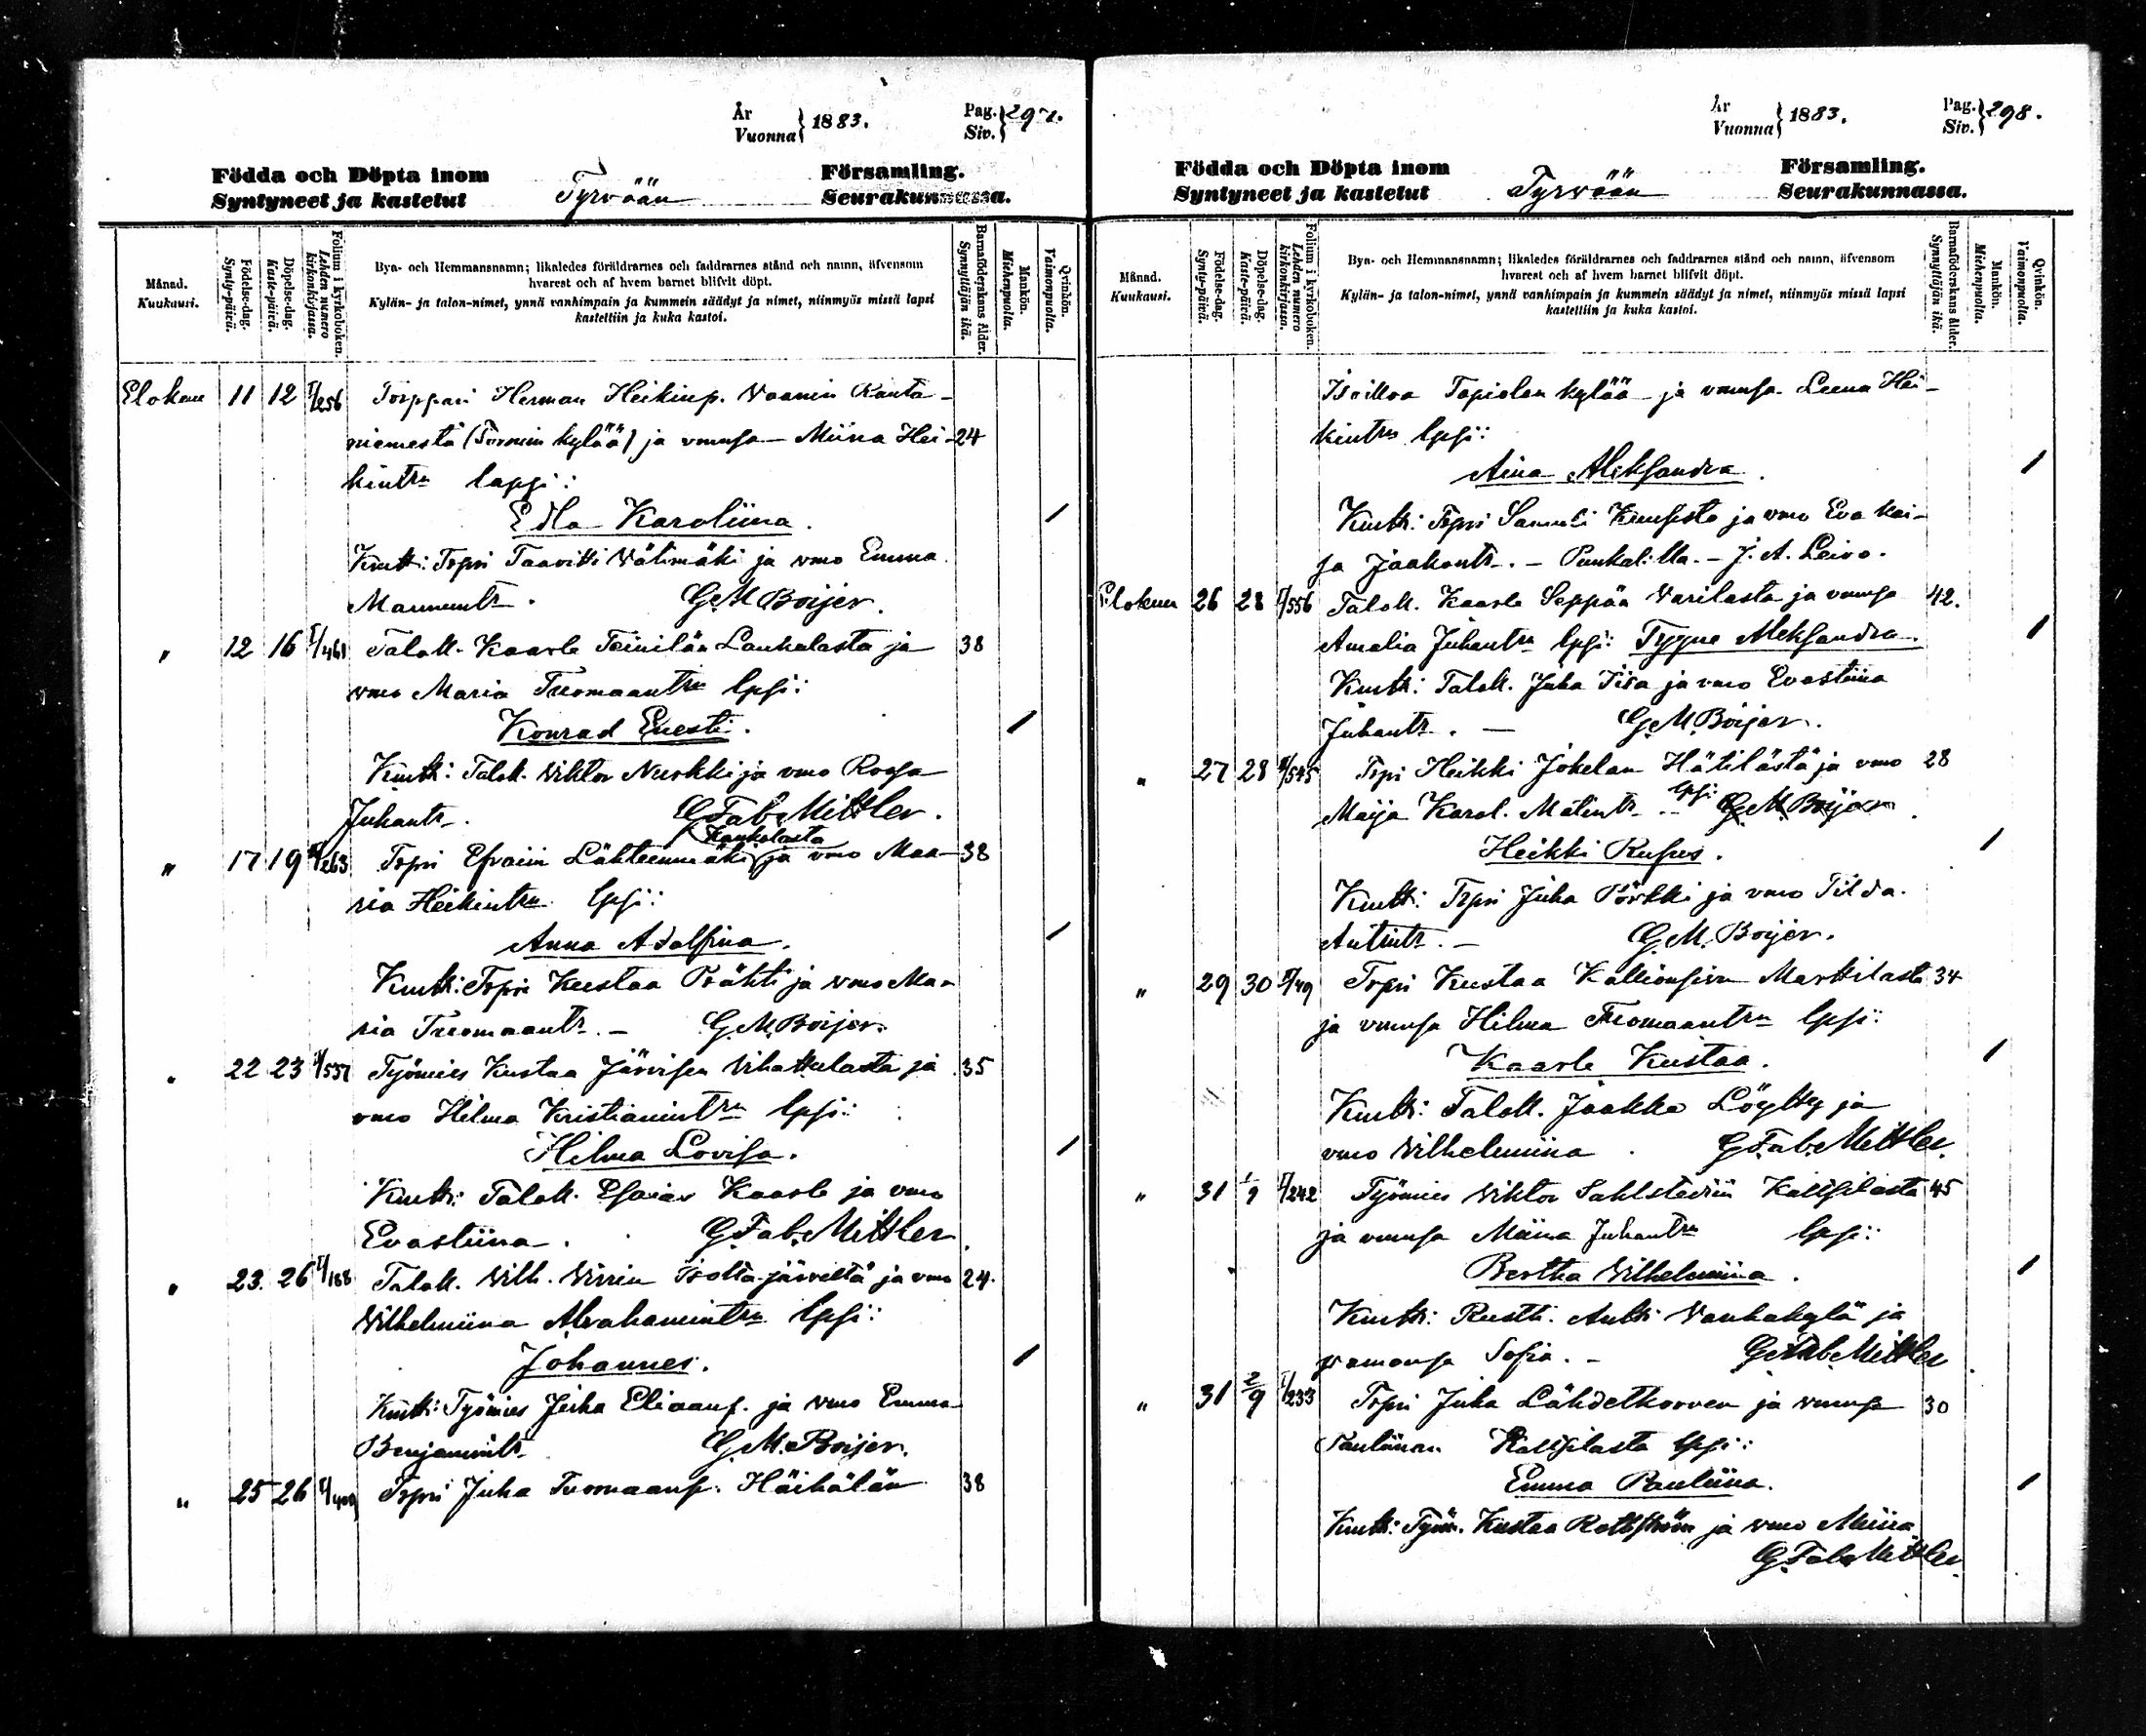 År
Vuonna} 1883.
Pag.
Siv.} 297.
Födda och Döpta inom
Syntyneet ja kastetut
Tyrvään
Församling.
Seurakunnassa.
Månad.
Kuukausi.
Födelse-dag.
Synty-päivä.
Döpelse-dag.
Kaste-päivä.
Folium i kyrkoboken.
Lehden numero kirkonkirjassa.
Bya- och Hemmansnamn; likaledes föräldrarnes och faddrarnes stånd och namn, äfvensom
hvarest och af hvem barnet blifvit döpt.
Kylän- ja talon-nimet, ynnä vanhimpain ja kummein säädyt ja nimet, niinmyös missä lapsi
kastettiin ja kuka kastoi.
Barnaföderskans ålder.
Synnyttäjän ikä.
Mankön.
Miehenpuolta.
Qvinkön.
Vaimonpuolta.
Elokuu 11 12 I/256 Torppari Herman Heikinp. Vaanin Ranta-
niemestä (Tormin kylää) ja vmnsa Miina Hei- 24
kintrn lapsi:
Edla Karoliina.
Kmtt: Trpri Taavitti Välimäki ja vmo Emma
Mannuntr. G.M Boijer.
" 12 16 I/461 Talok. Kaarle Teinilän Laukulasta ja 38
vmo Maria Tuomaantrn lpsi:
Konrad Enesti.
Kmtt: Talok. Viktor Nuskki ja vmo Roosa
Juhantr. G Fab. Mittler.
Kaukolasta
" 17 19 /263 Trpri Efraim Lähteenmäki ja vmo Maa- 38
ria Heikintrn lpsi:
Anna Adolfina.
Kmtt: Trpri Kustaa Prähti ja vmo Maa
ria Tuomaantr. - G.M. Boijer.
" 22 23 /557 Työmies Kustaa Järvisen Vihattulasta ja 35
vmo Hilma Kristianintrn lpsi:
Hilma Lovisa.
Kmtt: Talok. Esaias Kaarle ja vmo
Evastiina. G. Fab. Mittler
" 23. 26 /188 Talok. Vilh. Virrin Isolta-järveltä ja vmo 24.
Vilhelmiina Abrahamintrn lpsi:
Johannes.
Kmtt: Työmies Juha Eliaanp. ja vmo Emma
Benjamintr. G.M. Boijer.
" 25 26 Trpri Juha Tuomaanp. Häihälän 38
År
Vuonna} 1883.
Pag.
Siv.} 298.
Födda och Döpta inom
Syntyneet ja kastetut
Tyrvään
Församling.
Seurakunnassa.
Månad.
Kuukausi.
Födelse-dag.
Synty-päivä.
Döpelse-dag.
Kaste-päivä.
Folium i kyrkoboken.
Lehden numero kirkonkirjassa.
Bya- och Hemmansnamn; likaledes föräldrarnes och faddrarnes stånd och namn, äfvensom
hvarest och af hvem barnet blifvit döpt.
Kylän- ja talon-nimet, ynnä vanhimpain ja kummein säädyt ja nimet, niinmyös missä lapsi
kastettiin ja kuka kastoi.
Barnaföderskans ålder.
Synnyttäjän ikä.
Mankön.
Miehenpuolta.
Qvinkön.
Vaimonpuolta.
Tapiolan kylää ja vmnsa Leena Hei-
kintrn lpsi:
Aina Aleksandra.
Kmtt: Trpri Samuli ja vmo Eva Kai-
sa Jaakontr. - Punkalilla. - J. A. Leivo.
Elokuu 26 28 /556 Talok. Kaarle Seppän Varilasta ja vmnsa 42.
Amalia Juhantrn lpsi: Tyyne Aleksandra.
Kmtt: Talok. Juha Iisa ja vmo Evastiina
Juhantr. - G.M. Boijer.
" 27 28 /545 Trpri Heikki Jokelan Hätilästä ja vmo 28
Maija Karol. Matintr. lpsi: G.M. Boijer
Heikki Rufus.
Kmtt: Trpri Juha Pörkki ja vmo Tilda
Antintr. - G.M. Boijer.
" 29 30 /49 Trpri Kustaa Kallionsivu Marttilasta 34
ja vmnsa Hilma Tuomaantrn lpsi:
Kaarle Kustaa.
Kmtt: Talok. Jaakko Löytty ja
vmo Vilhelmiina. G. Fab. Mittler.
" 31 1/9 /242 Työmies Viktor Sahlstedtin Kallsilasta 45
ja vmnsa Miina Juhantrn lpsi:
Bertha Vilhelmiina.
Kmtt: Rustt. Antti Vanhakylä ja
vamonsa Sofia. - G. Fab. Mittler
" 31 2/9 /233 Trpri Juha Lähdetkorven ja vmnsa 30
Pauliinan Kallsilasta lpsi:
Emma Pauliina.
Kmtt: Työm. Kustaa Rothström ja vmo Miina
G. Fab. Mittler.